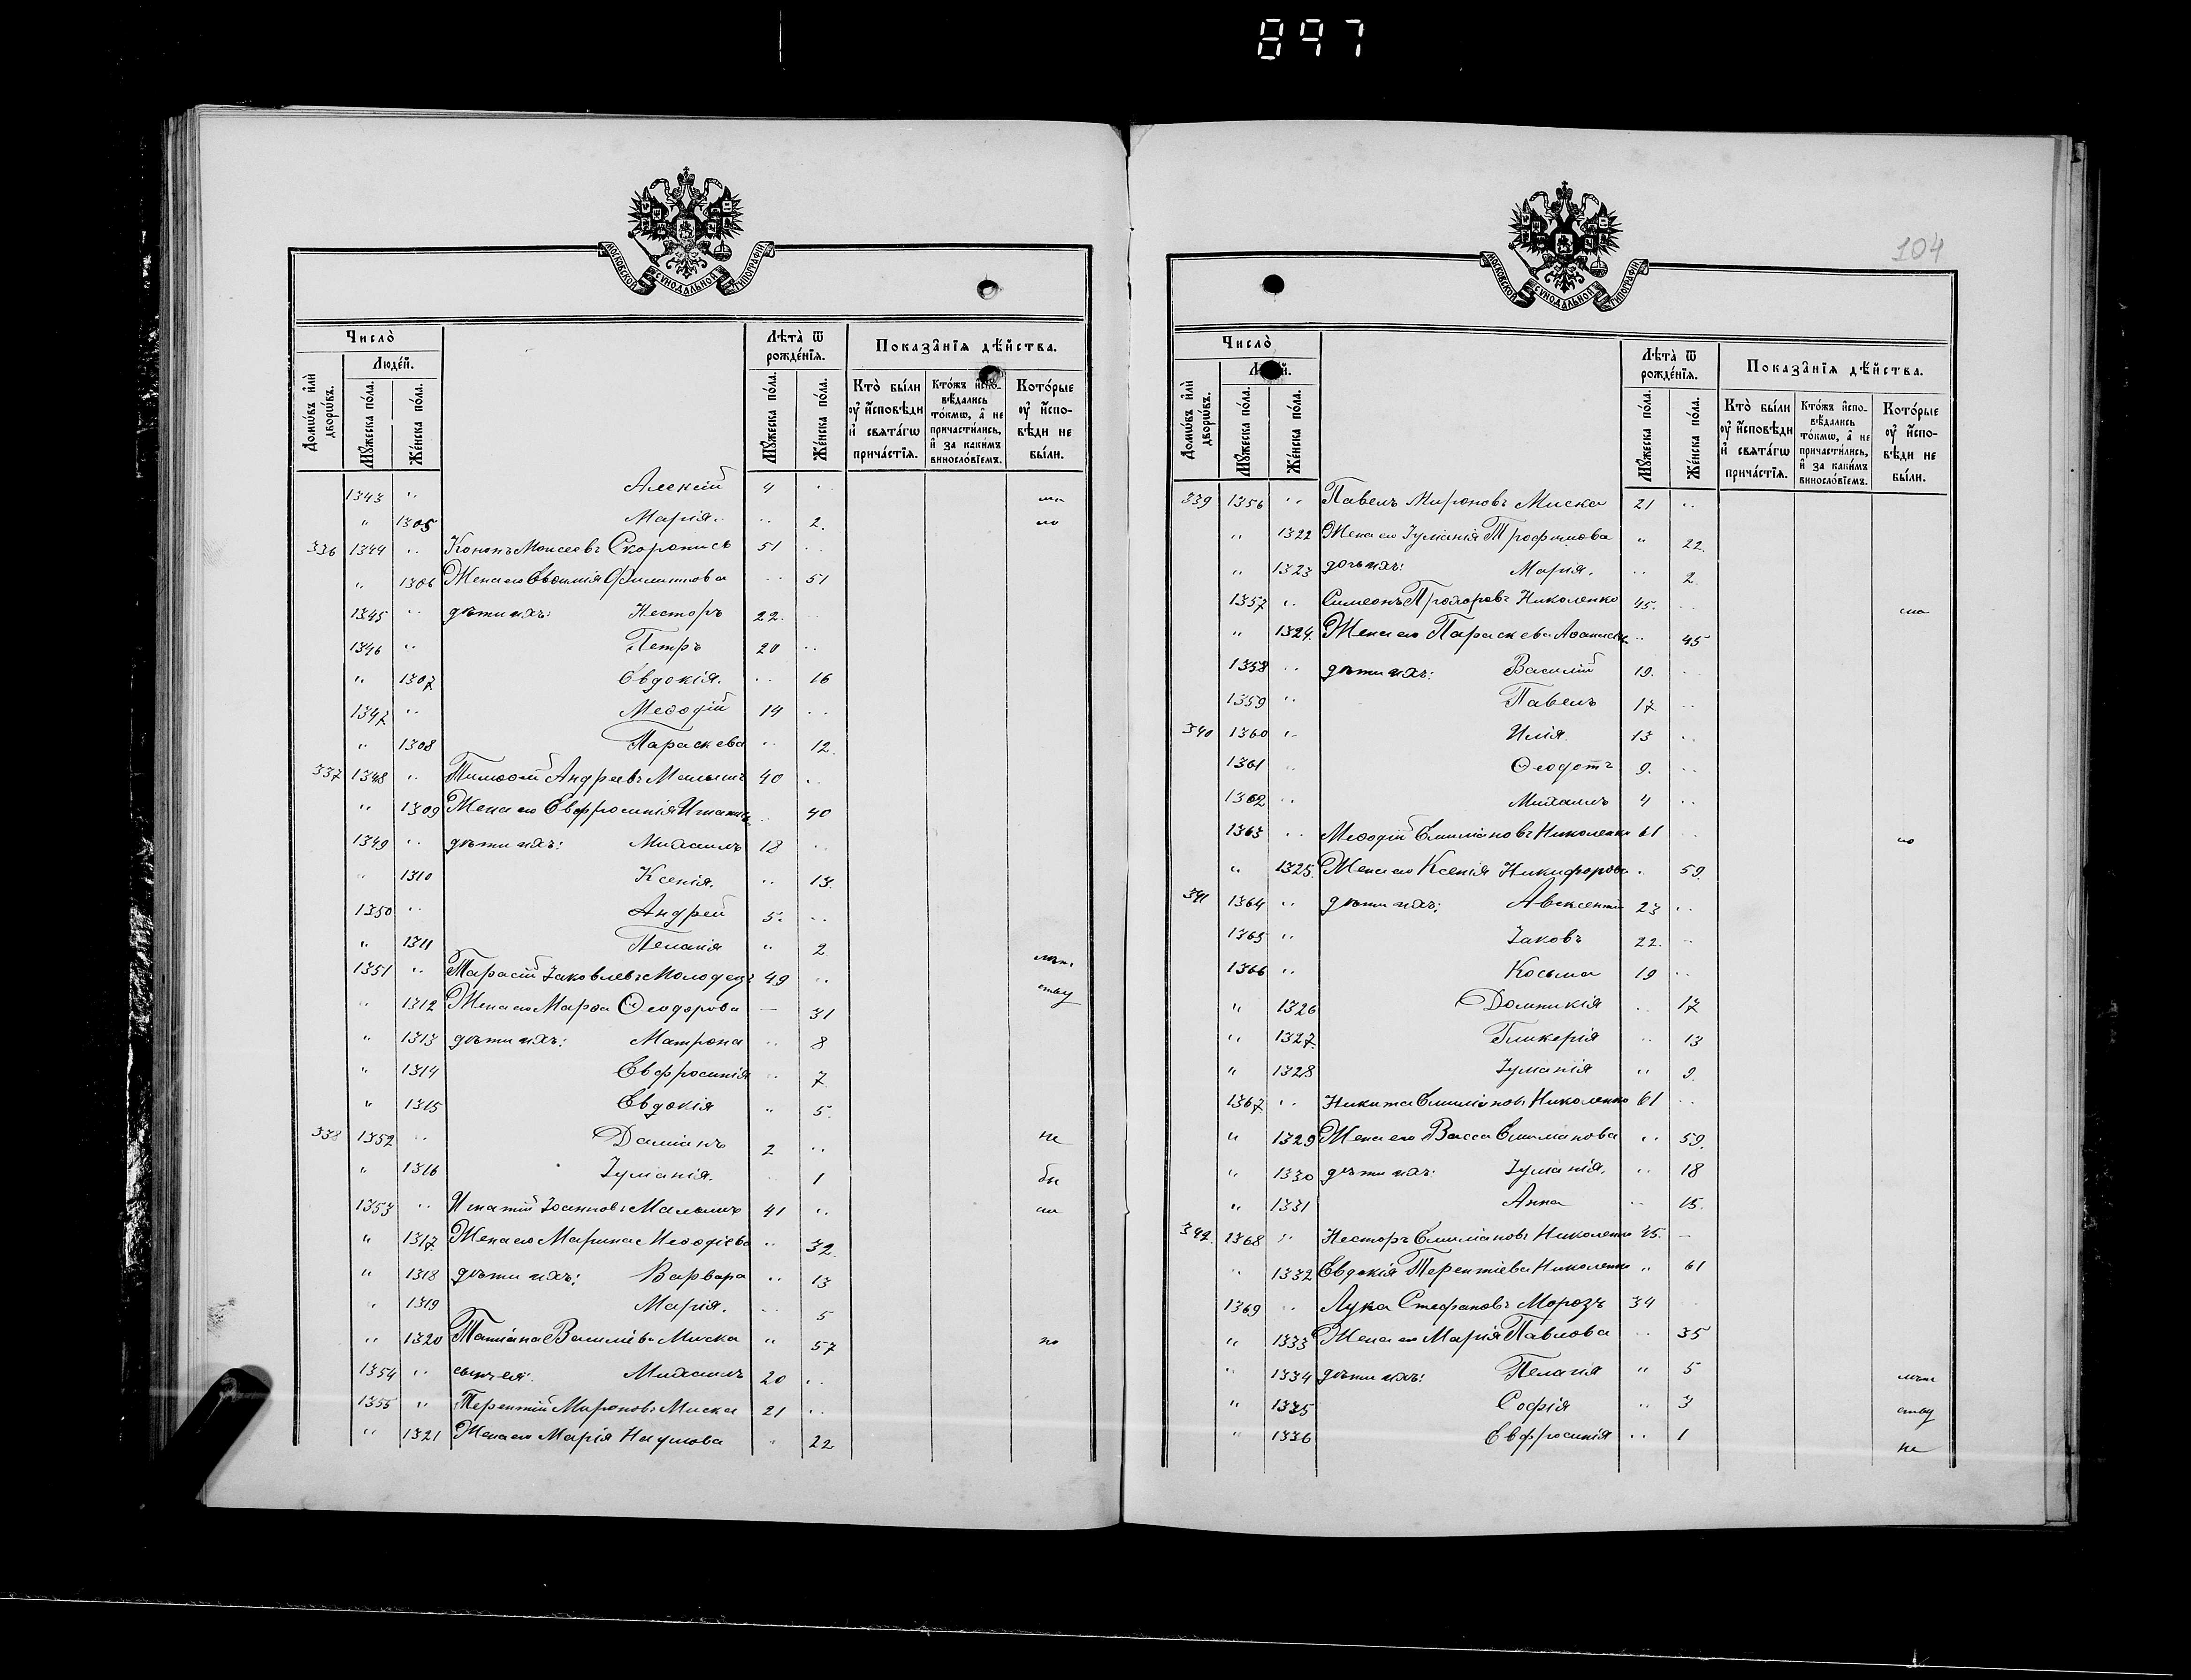 897
МОСКОВСКОЙ СѴНОДАЛЬНОЙ ТИПОГРАФІИ
Число̀
Людей.
Домѡвъ и҆лѝ дворѡвъ.
Мꙋжеска по́ла.
Же́нска по́ла.
Лѣта̀ ѿ рожде́нїѧ.
Мꙋжеска по́ла.
Же́нска по́ла.
Показа̑нїѧ дѣ́йства.
Кто̀ бы́ли ᲂу҆ и҆сповѣди и҆ свѧта́гѡ прича́стїѧ.
Кто́жъ и҆сповѣдались то́кмѡ, а҆ не причасти́лись, и҆ за каки́мъ винословїемъ.
Кото́рые ᲂу҆ и҆сповѣди не бы́ли.
1343 " Алексій 4 "
" 1305 Марія. " 2. по
336 1344 " Кононъ Моисеевъ Скоропись 51 "
" 1306 Жена его Евфимія Филиппова " 51
1345 " дѣти ихъ: Несторъ 22. "
1346 " Петръ 20 "
" 1307 Евдокія. " 16
1347 " Меѳодій 14 "
" 1308 Параскева " 12.
337 1348 " Тимоѳей Андреевъ Малышъ 40 "
" 1309 Жена его Евфросинія " 40
1349 " дѣти ихъ: Михаилъ 18 "
" 1310 Ксенія. " 13.
1350 " Андрей 5. "
" 1311 Пелагія " 2
1351 " Тарасій Іаковлевъ Молодецъ 49 " мѣт
" 1312 Жена его Марѳа Ѳеодорова — 31 ству
" 1313 дѣти ихъ: Матрона " 8
" 1314 Евфросинія " 7
" 1315 Евдокія " 5.
338 1352 " Даміанъ 2 " не
" 1316 Іуліанія. " 1 бы
1353 " Игнатій Іоанновъ Малышъ 41 "
" 1317 Жена его Марина Меѳодіева " 32
" 1318 дѣти ихъ: Варвара " 13
" 1319 Марія. " 5
" 1320 Татіана Василіева Миска " 57 по
1354 " сынъ ея: Михаилъ 20 "
1355 " Терентій Мироновъ Миска 21 "
" 1321 Жена его Марія Наумова " 22
104
МОСКОВСКОЙ СѴНОДАЛЬНОЙ ТИПОГРАФІИ
Число̀
Домѡвъ и҆лѝ дворѡвъ.
Мꙋжеска по́ла.
Же́нска по́ла.
Лѣта̀ ѿ рожде́нїѧ.
Мꙋжеска по́ла.
Же́нска по́ла.
Показа̑нїѧ дѣ́йства.
Кто̀ бы́ли ᲂу҆ и҆сповѣди и҆ свѧта́гѡ прича́стїѧ.
Кто́жъ и҆сповѣдались то́кмѡ, а҆ не причасти́лись, и҆ за каки́мъ винословїемъ.
Кото́рые ᲂу҆ и҆сповѣди не бы́ли.
339 1356 " Павелъ Мироновъ Миска 21 "
" 1322 Жена его Іуліанія Трофимова " 22.
" 1323 дочь ихъ: Марія. " 2
1357 " Симеонъ Прохоровъ Николенко 45. "
" 1324. Жена его Параскева " 45
1358 " дѣти ихъ: Василій 19. "
1359 " Павелъ 17 "
340 1360 " Илія 13 "
1361 " Ѳеодотъ 9. "
1362 " Михаилъ 4 "
1363 " Меѳодій Николенко 61 " по
" 1325. Жена его Ксенія Никифорова " 59.
341 1364 " дѣти ихъ: Авксентій 23 "
1365 " Іаковъ 22. "
1366 " Косьма 19 "
" 1326 Домникія " 17
" 1327. Гликерія " 13
" 1328 Іуліанія " 9.
1367 " Никита Николенко 61 "
" 1329 Жена его Васса " 59.
" 1330 дѣти ихъ: Іуліанія. " 18
" 1331 Анна " 15.
342. 1368 " Несторъ Николенко 45. —
" 1332 Евдокія Терентіева Николенко " 61
1369 " Лука Стефановъ Морозъ 34
" 1333 Жена его Марія Павлова " 35
" 1334 дѣти ихъ: Пелагія " 5 мѣт
" 1335 Софія " 3 ству
" 1336 Евфросинія " 1 не